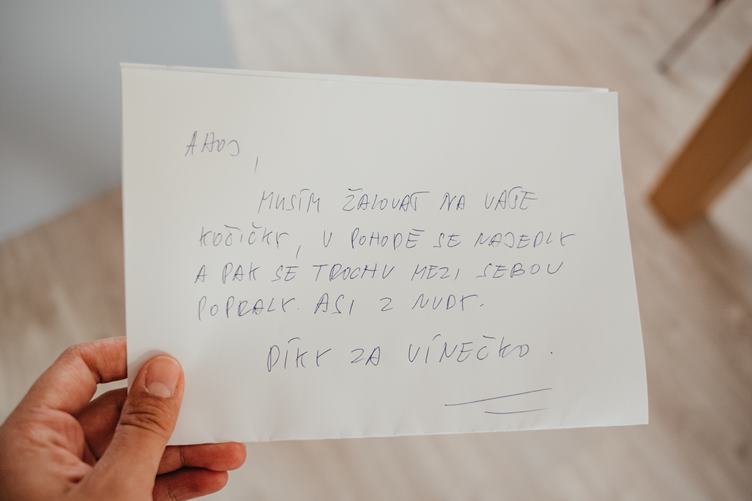 AHOJ,
MUSÍM ŽALOVAT NA VAŠE
KOČIČKY, V POHODĚ SE NAJEDLY
A PAK SE TROCHU MEZI SEBOU
POPRALY. ASI Z NUDY.
DÍKY ZA VÍNEČKO.